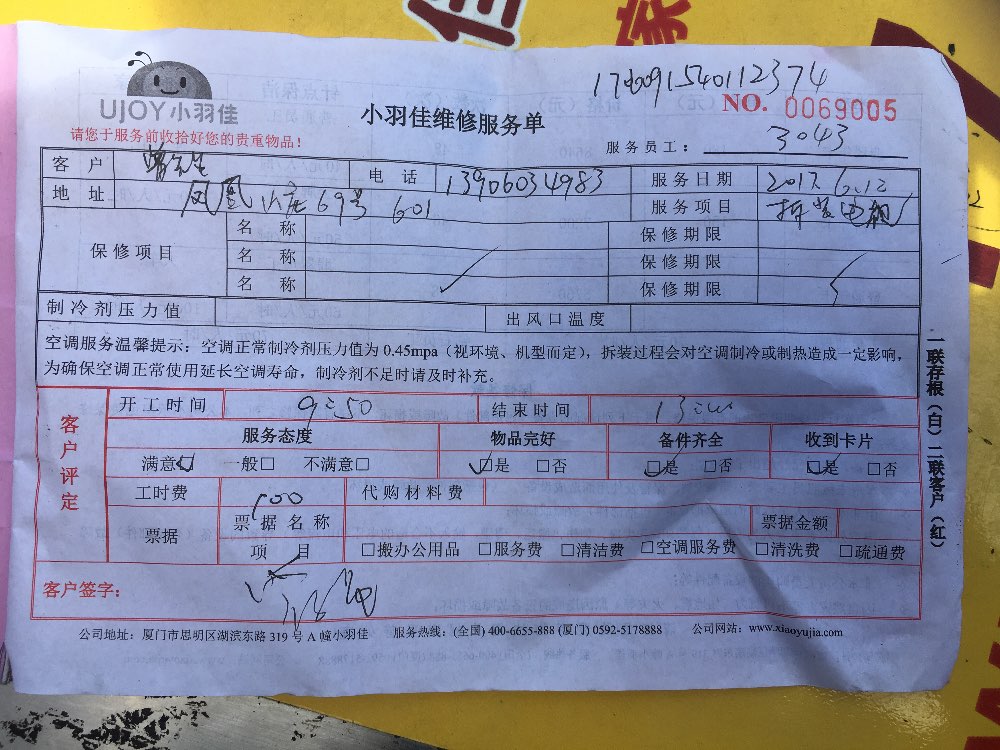 佳 家
170091540112374
UJOY小羽佳
请您于服务前收拾好您的贵重物品！
小羽佳维修服务单
NO. 0069005
服务员工： 3043
客户 曾先生 电话 13906034983 服务日期 2017.6.12
地址 凤凰山庄69号 601 服务项目 拆装电视
保修项目 名称 保修期限
名称 保修期限
名称 保修期限
制冷剂压力值 出风口温度
空调服务温馨提示：空调正常制冷剂压力值为 0.45mpa（视环境、机型而定），拆装过程会对空调制冷或制热造成一定影响，
为确保空调正常使用延长空调寿命，制冷剂不足时请及时补充。
客户评定
开工时间 9:50 结束时间
服务态度 物品完好 备件齐全 收到卡片
满意☑ 一般□ 不满意□ ☑是 □否 ☑是 □否 ☑是 □否
工时费 100 代购材料费
票据 票据名称 票据金额
项目 □搬办公用品 □服务费 □清洁费 □空调服务费 □清洗费 □疏通费
客户签字：
公司地址：厦门市思明区湖滨东路 319 号 A 幢小羽佳 服务热线：(全国) 400-6655-888 (厦门) 0592-5178888 公司网站：www.xiaoyujia.com
一联存根（白）二联客户（红）